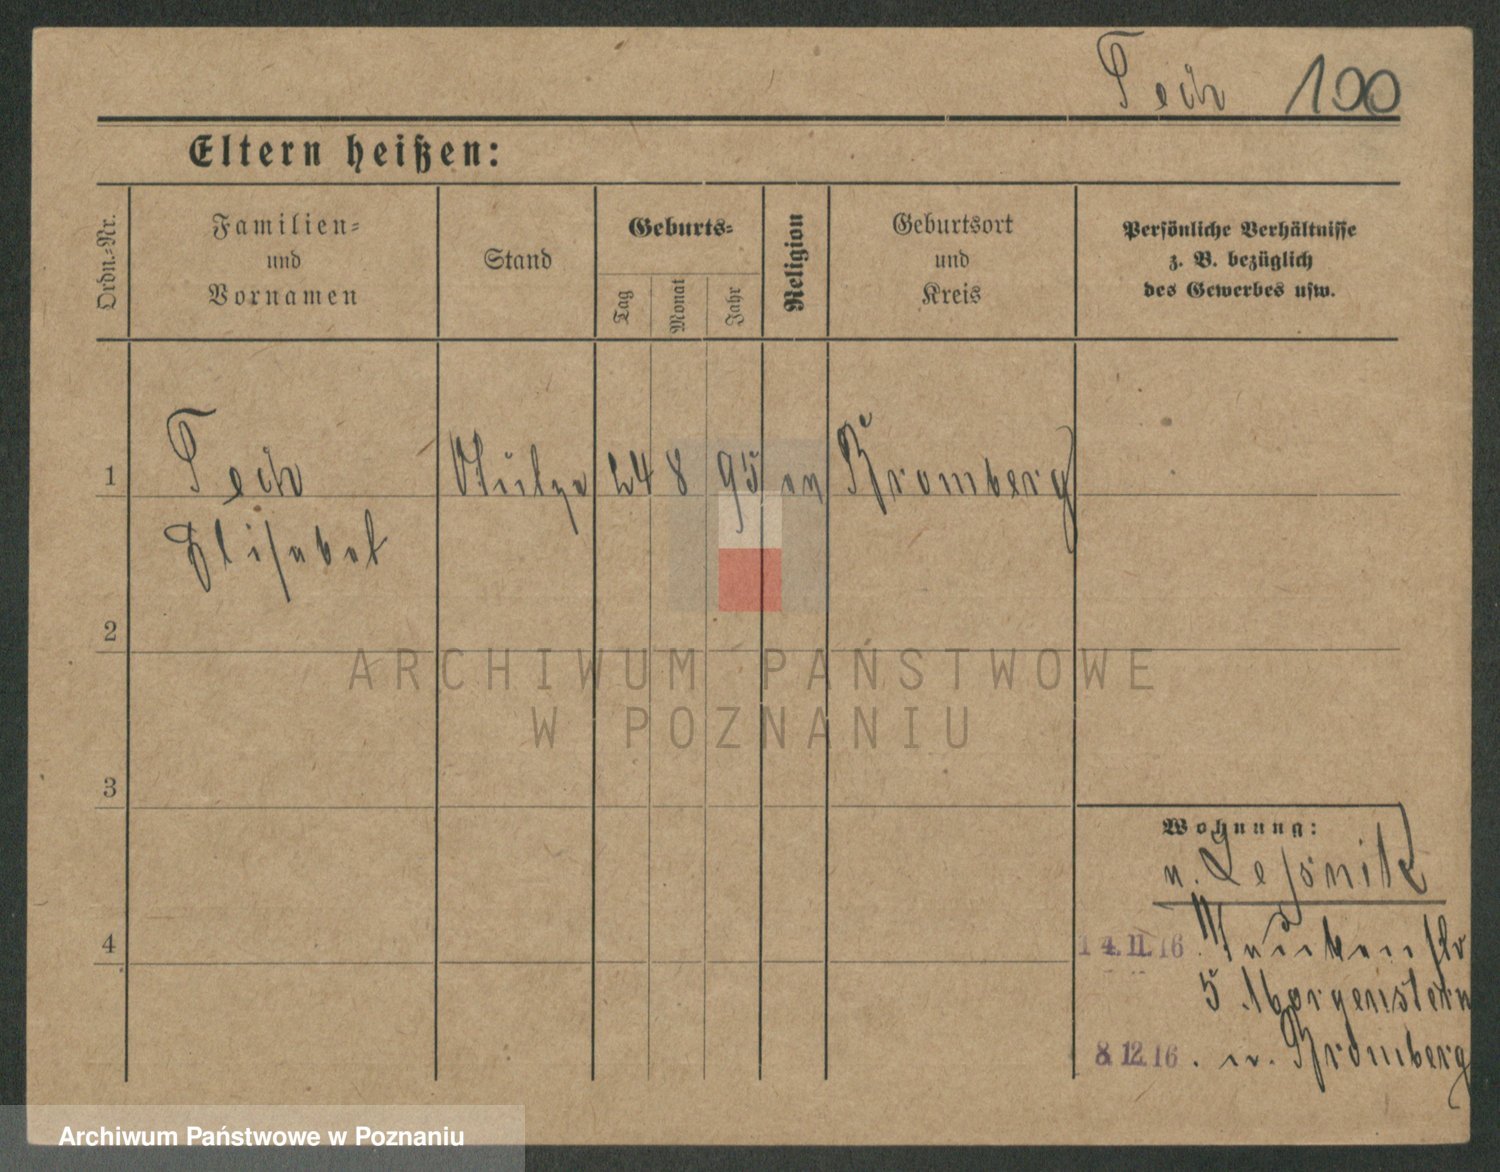 Tech 100
Eltern heißen:
Ordn.-Nr.
Familien-
und
Vornamen
Stand
Geburts-
Tag
Monat
Jahr
Religion
Geburtsort
und
Kreis
Persönliche Verhältnisse
z. B. bezüglich
des Gewerbes usw.
1
Tech
24 8 95 ev Bromberg
Elisabet
2
3
4
Wohnung:
n.
14.11.16
5 Morgenstern
8.12.16. n. Bromberg
ARCHIWUM PAŃSTWOWE
W POZNANIU
Archiwum Państwowe w Poznaniu